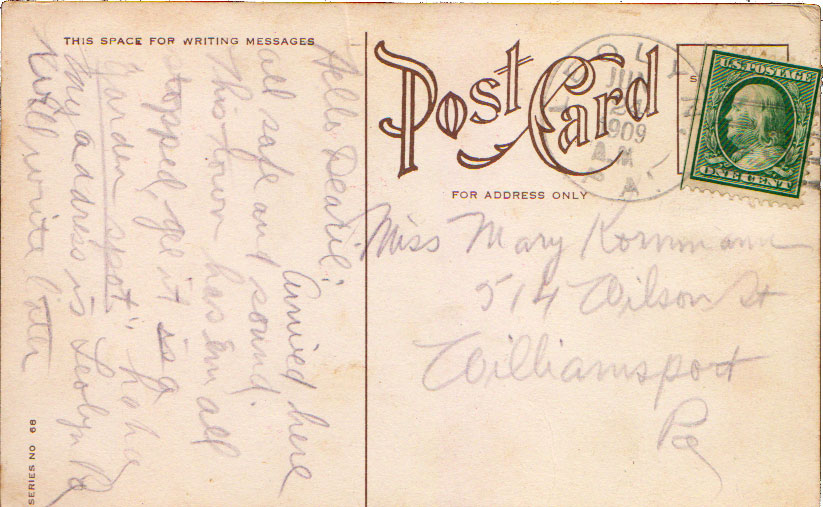 THIS SPACE FOR WRITING MESSAGES
Hello Dearie:
Arrived here
all safe and sound.
This town has em all
stopped, gee it is a
"garden spot" haha
My address is Leolyn Pa
Will write later
SERIES NO 68
Post Card
FOR ADDRESS ONLY
JUN
1909
A.M
U.S. POSTAGE
ONE CENT
Miss Mary Kornmann
514 Wilson St
Williamsport
Pa